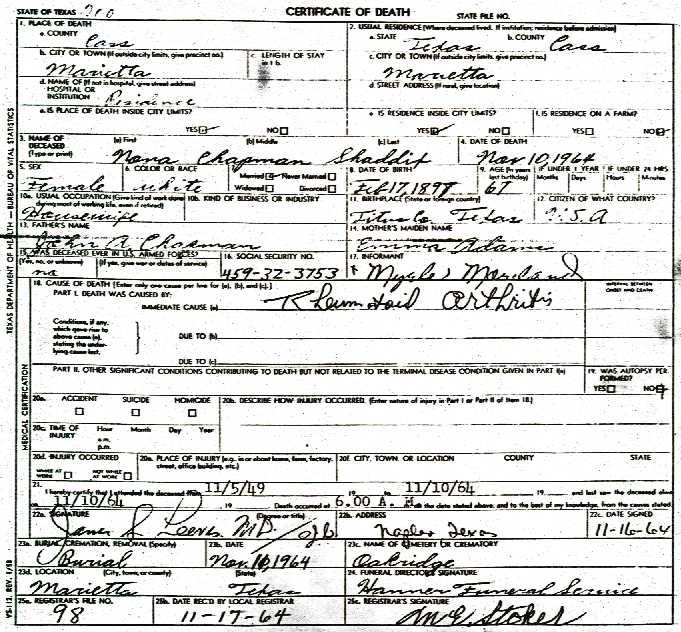 STATE OF TEXAS 200 CERTIFICATE OF DEATH STATE FILE NO.
1. PLACE OF DEATH 2. USUAL RESIDENCE (Where deceased lived. If institution; residence before admission)
a. COUNTY Cass a. STATE Texas b. COUNTY Cass
b. CITY OR TOWN (If outside city limits, give precinct no.) c. LENGTH OF STAY in 1 b. c. CITY OR TOWN (If outside city limits, give precinct no.)
Marietta Marietta
d. NAME OF (If not in hospital, give street address) HOSPITAL OR INSTITUTION Residence d. STREET ADDRESS (If rural, give location)
e. IS PLACE OF DEATH INSIDE CITY LIMITS? e. IS RESIDENCE INSIDE CITY LIMITS? f. IS RESIDENCE ON A FARM?
YES NO YES NO YES NO
3. NAME OF DECEASED (Type or print) (a) First (b) Middle (c) Last 4. DATE OF DEATH
Nona Chapman Shaddix Nov 10, 1964
5. SEX 6. COLOR OR RACE Married Never Married Widowed Divorced 8. DATE OF BIRTH 9. AGE (In years last birthday) IF UNDER 1 YEAR IF UNDER 24 HRS
Months Days Hours Minutes
Female white Feb 17, 1897 67
10a. USUAL OCCUPATION (Give kind of work done during most of working life, even if retired) 10b. KIND OF BUSINESS OR INDUSTRY 11. BIRTHPLACE (State or foreign country) 12. CITIZEN OF WHAT COUNTRY?
Housewife Titus Co. Texas U.S.A
13. FATHER'S NAME 14. MOTHER'S MAIDEN NAME
John A Chapman Emma Adams
15. WAS DECEASED EVER IN U.S. ARMED FORCES? 16. SOCIAL SECURITY NO. 17. INFORMANT
(Yes, no, or unknown) (If yes, give war or dates of service)
no 459-32-3753
18. CAUSE OF DEATH (Enter only one cause per line for (a), (b), and (c).) INTERVAL BETWEEN ONSET AND DEATH
PART I. DEATH WAS CAUSED BY:
IMMEDIATE CAUSE (a) Rheumatoid Arthritis
Conditions, if any, which gave rise to above cause (a), stating the underlying cause last.
DUE TO (b)
DUE TO (c)
PART II. OTHER SIGNIFICANT CONDITIONS CONTRIBUTING TO DEATH BUT NOT RELATED TO THE TERMINAL DISEASE CONDITION GIVEN IN PART I(a) 19. WAS AUTOPSY PERFORMED?
YES NO
20a. ACCIDENT SUICIDE HOMICIDE 20b. DESCRIBE HOW INJURY OCCURRED. (Enter nature of injury in Part I or Part II of item 18.)
20c. TIME OF INJURY Hour a.m. p.m. Month Day Year
20d. INJURY OCCURRED WHILE AT WORK NOT WHILE AT WORK 20e. PLACE OF INJURY (e.g., in or about home, farm, factory, street, office building, etc.) 20f. CITY, TOWN, OR LOCATION COUNTY STATE
21. I hereby certify that I attended the deceased from 11/5/49 19 to 11/10/64 19 and last saw the deceased alive
on 11/10/64 19 Death occurred at 6.00 A. M. on the date stated above; and to the best of my knowledge, from the causes stated.
22a. SIGNATURE (Degree or title) 22b. ADDRESS 22c. DATE SIGNED
M.D. Naples Texas 11-16-64
23a. BURIAL, CREMATION, REMOVAL (Specify) 23b. DATE 23c. NAME OF CEMETERY OR CREMATORY
Burial Nov. 10, 1964 Oakridge
23d. LOCATION (City, town, or county) (State) 24. FUNERAL DIRECTOR'S SIGNATURE
Marietta Texas Hanner Funeral Service
25a. REGISTRAR'S FILE NO. 25b. DATE REC'D BY LOCAL REGISTRAR 25c. REGISTRAR'S SIGNATURE
98 11-17-64 M E Stoker
TEXAS DEPARTMENT OF HEALTH — BUREAU OF VITAL STATISTICS
MEDICAL CERTIFICATION